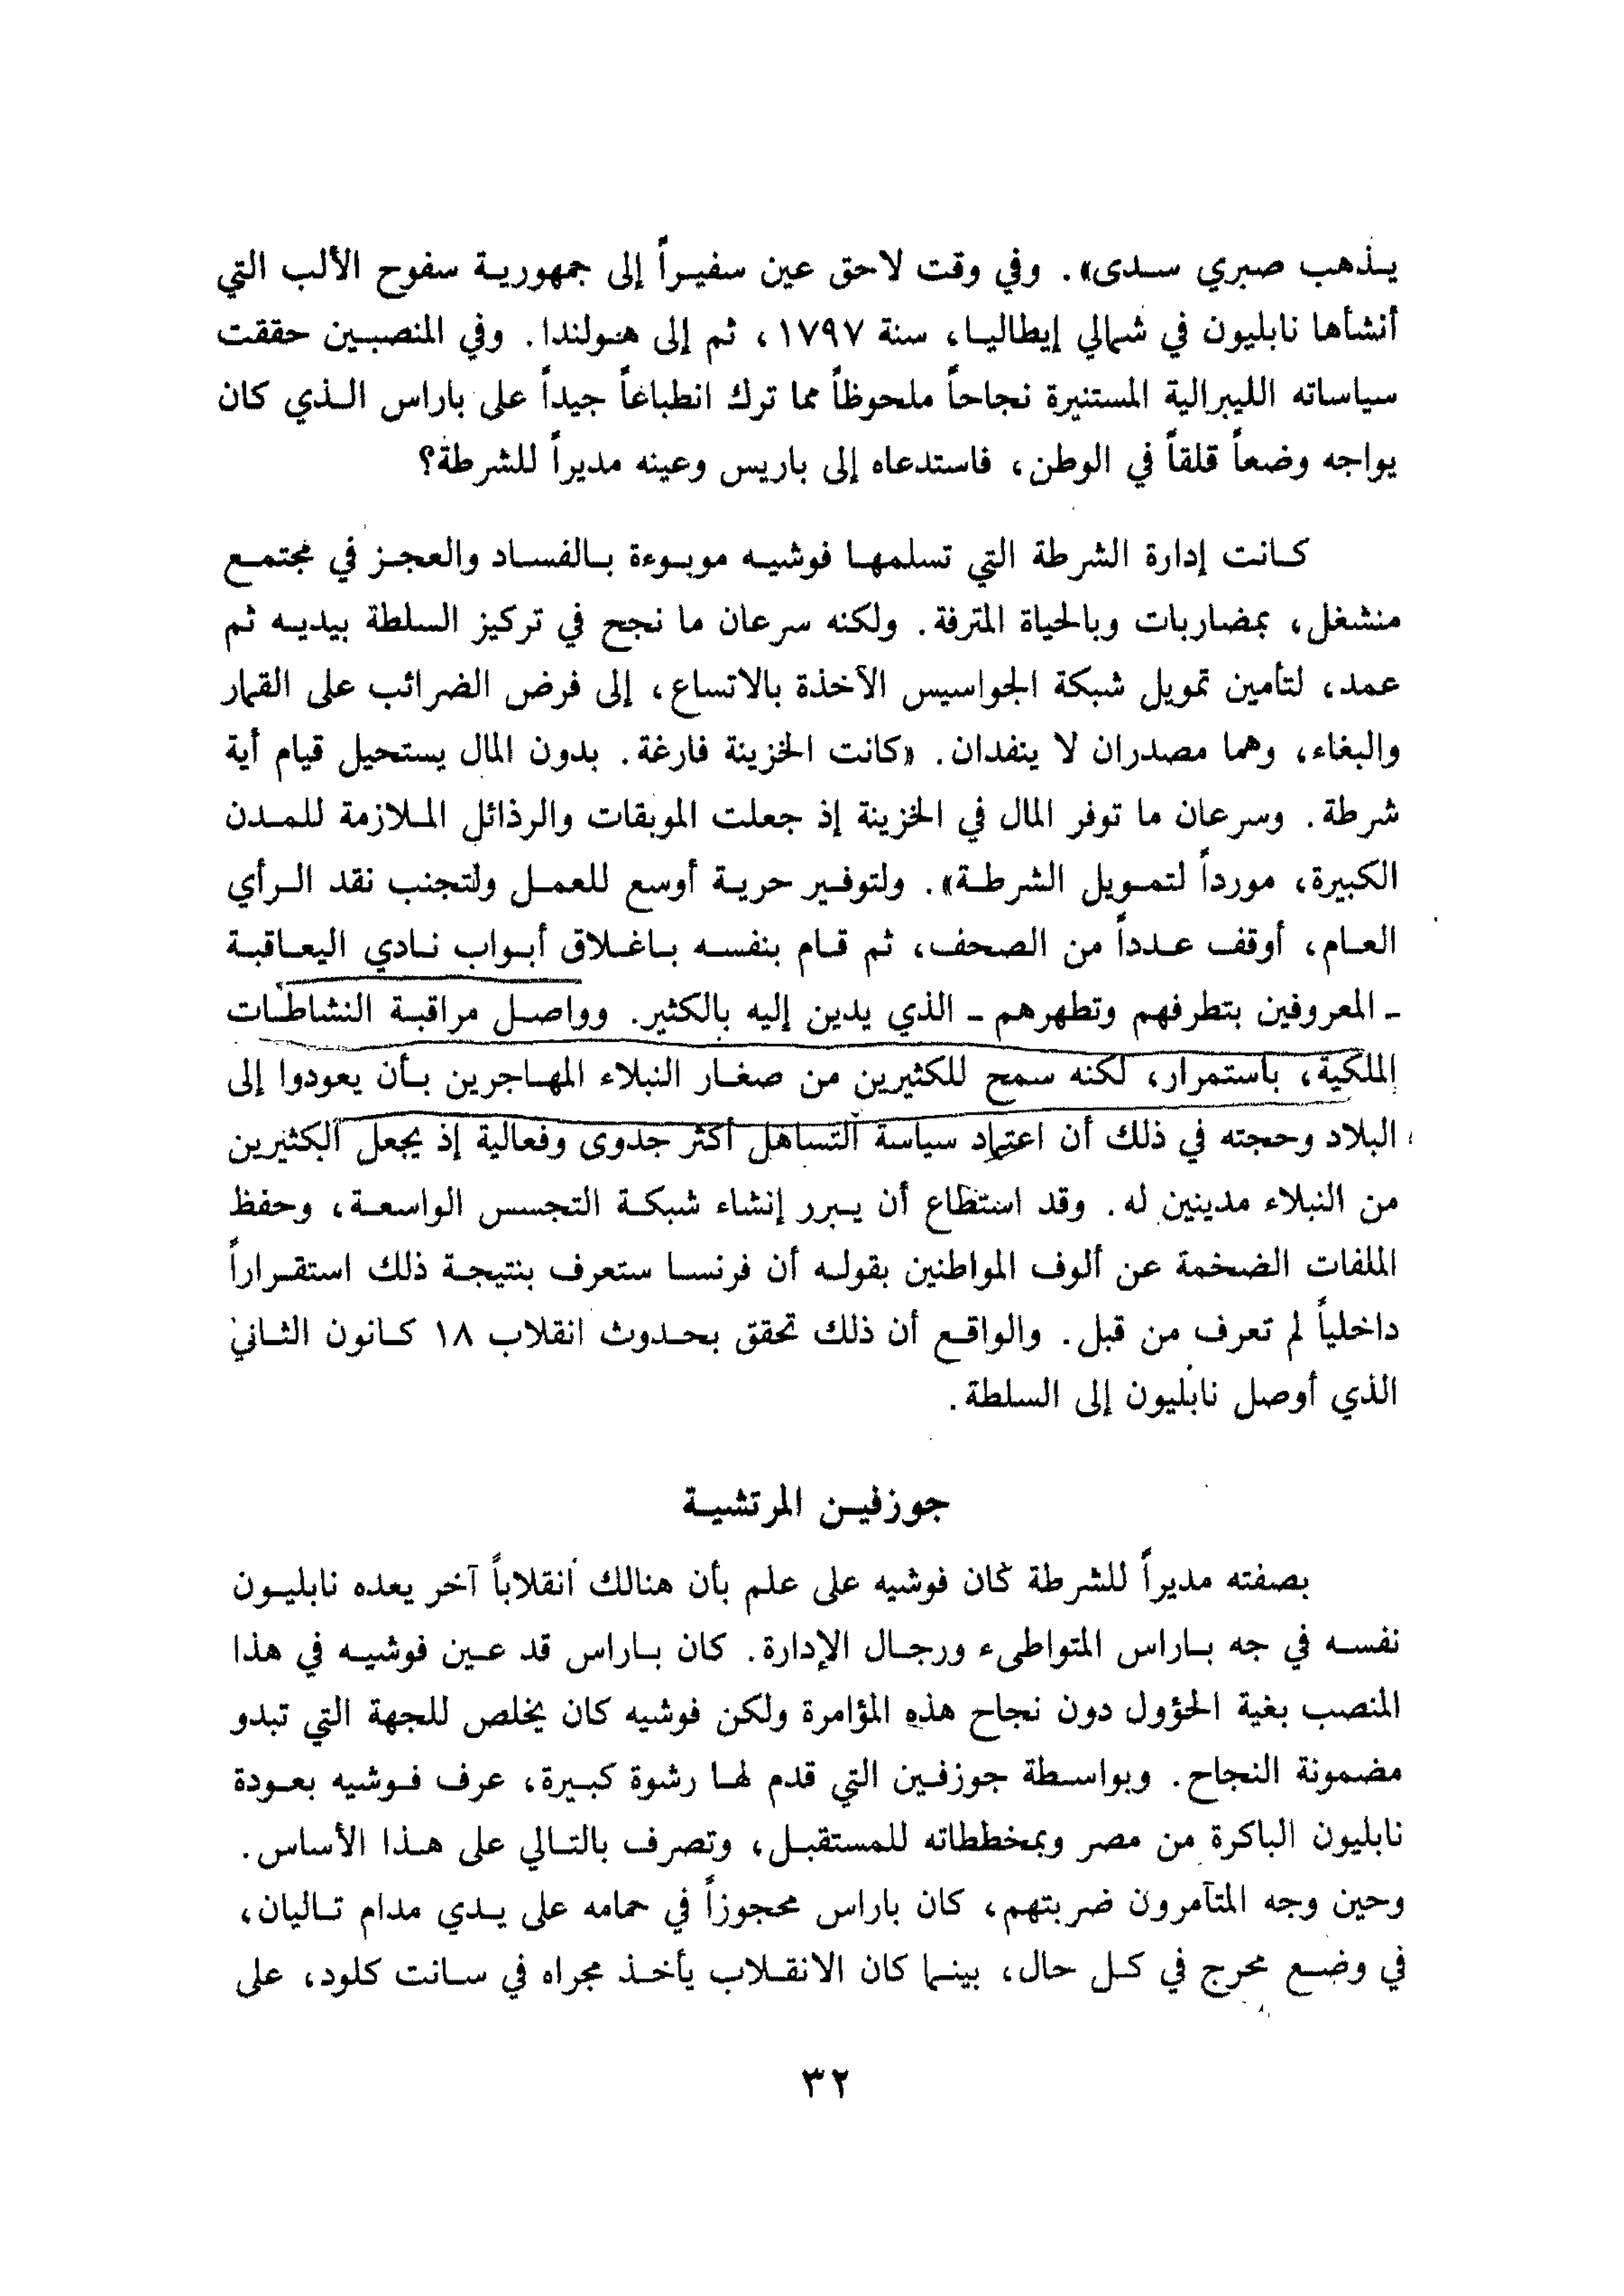 يذهب صبري سدى». وفي وقت لاحق عين سفيراً إلى جمهورية سفوح الألب التي
أنشأها نابليون في شمالي إيطاليا، سنة ١٧٩٧، ثم إلى هولندا. وفي المنصبين حققت
سياساته الليبرالية المستنيرة نجاحاً ملحوظاً مما ترك انطباعاً جيداً على باراس الذي كان
يواجه وضعاً قلقاً في الوطن، فاستدعاه إلى باريس وعينه مديراً للشرطة؟
كانت إدارة الشرطة التي تسلمها فوشيه موبوءة بالفساد والعجز في مجتمع
منشغل، بمضاربات وبالحياة المترفة. ولكنه سرعان ما نجح في تركيز السلطة بيديه ثم
عمد، لتأمين تمويل شبكة الجواسيس الآخذة بالاتساع، إلى فرض الضرائب على القمار
والبغاء، وهما مصدران لا ينفدان. «كانت الخزينة فارغة. بدون المال يستحيل قيام أية
شرطة. وسرعان ما توفر المال في الخزينة إذ جعلت الموبقات والرذائل الملازمة للمدن
الكبيرة، مورداً لتمويل الشرطة». ولتوفير حرية أوسع للعمل ولتجنب نقد الرأي
العام، أوقف عدداً من الصحف، ثم قام بنفسه باغلاق أبواب نادي اليعاقبة
ـ المعروفين بتطرفهم وتطهرهم ـ الذي يدين إليه بالكثير. وواصل مراقبة النشاطات
الملكية، باستمرار، لكنه سمح للكثيرين من صغار النبلاء المهاجرين بأن يعودوا إلى
البلاد وحجته في ذلك أن اعتماد سياسة التساهل أكثر جدوى وفعالية إذ يجعل الكثيرين
من النبلاء مدينين له. وقد استطاع أن يبرر إنشاء شبكة التجسس الواسعة، وحفظ
الملفات الضخمة عن ألوف المواطنين بقوله أن فرنسا ستعرف بنتيجة ذلك استقراراً
داخلياً لم تعرف من قبل. والواقع أن ذلك تحقق بحدوث انقلاب ١٨ كانون الثاني
الذي أوصل نابليون إلى السلطة.
جوزفين المرتشية
بصفته مديراً للشرطة كان فوشيه على علم بأن هنالك انقلاباً آخر يعده نابليون
نفسه في جه باراس المتواطىء ورجال الإدارة. كان باراس قد عين فوشيه في هذا
المنصب بغية الحؤول دون نجاح هذه المؤامرة ولكن فوشيه كان يخلص للجهة التي تبدو
مضمونة النجاح. وبواسطة جوزفين التي قدم لها رشوة كبيرة، عرف فوشيه بعودة
نابليون الباكرة من مصر وبمخططاته للمستقبل، وتصرف بالتالي على هذا الأساس.
وحين وجه المتآمرون ضربتهم، كان باراس محجوزاً في حمامه على يدي مدام تاليان،
في وضع محرج في كل حال، بينما كان الانقلاب يأخذ مجراه في سانت كلود، على
٣٢